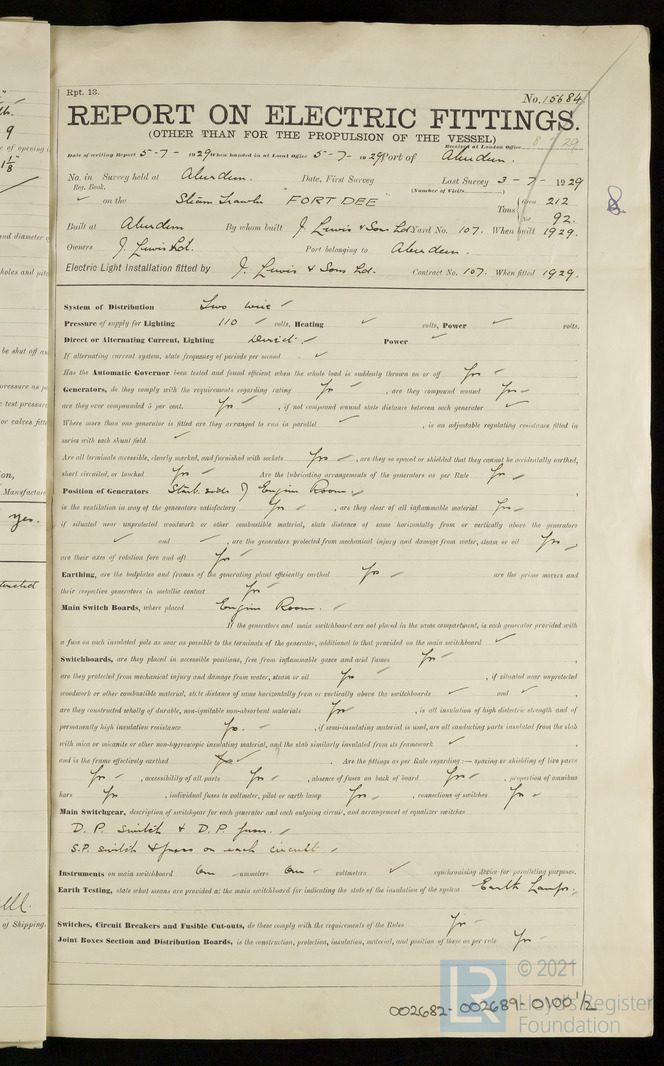 Rpt. 13.
No. 15684
REPORT ON ELECTRIC FITTINGS.
(OTHER THAN FOR THE PROPULSION OF THE VESSEL)
Received at London Office
Date of writing Report 5-7-1929 When handed in at Local Office 5-7-1929 Port of Aberdeen.
No. in Survey held at Aberdeen. Date, First Survey Last Survey 3-7-1929
Reg. Book. (Number of Visits
✓ on the Steam Trawler "FORT DEE" Tons 212
92.
Built at Aberdeen By whom built J Lewis & Sons Ld Yard No. 107. When built 1929.
Owners J. Lewis Ld. Port belonging to Aberdeen.
Electric Light Installation fitted by J. Lewis & Sons Ld. Contract No. 107. When fitted 1929.
System of Distribution Two wire ✓
Pressure of supply for Lighting 110 ✓ volts, Heating ✓ volts, Power ✓ volts.
Direct or Alternating Current, Lighting Direct ✓ Power ✓
If alternating current system, state frequency of periods per second ✓
Has the Automatic Governor been tested and found efficient when the whole load is suddenly thrown on or off Yes
Generators, do they comply with the requirements regarding rating Yes , are they compound wound Yes
are they over compounded 5 per cent. Yes , if not compound wound state distance between each generator ✓
Where more than one generator is fitted are they arranged to run in parallel ✓ , is an adjustable regulating resistance fitted in
series with each shunt field ✓
Are all terminals accessible, clearly marked, and furnished with sockets Yes , are they so spaced or shielded that they cannot be accidentally earthed,
short circuited, or touched Yes Are the lubricating arrangements of the generators as per Rule Yes
Position of Generators Starb. side of Engine Room ,
is the ventilation in way of the generators satisfactory Yes , are they clear of all inflammable material Yes
if situated near unprotected woodwork or other combustible material, state distance of same horizontally from or vertically above the generators
✓ and ✓ , are the generators protected from mechanical injury and damage from water, steam or oil Yes ,
are their axes of rotation fore and aft Yes
Earthing, are the bedplates and frames of the generating plant efficiently earthed Yes are the prime movers and
their respective generators in metallic contact Yes
Main Switch Boards, where placed Engine Room.
If the generators and main switchboard are not placed in the same compartment, is each generator provided with
a fuse on each insulated pole as near as possible to the terminals of the generator, additional to that provided on the main switchboard ✓
Switchboards, are they placed in accessible positions, free from inflammable gases and acid fumes Yes ,
are they protected from mechanical injury and damage from water, steam or oil Yes , if situated near unprotected
woodwork or other combustible material, state distance of same horizontally from or vertically above the switchboards ✓ and ✓ ,
are they constructed wholly of durable, non-ignitable non-absorbent materials Yes , is all insulation of high dielectric strength and of
permanently high insulation resistance Yes , if semi-insulating material is used, are all conducting parts insulated from the slab
with mica or micanite or other non-hygroscopic insulating material, and the slab similarly insulated from its framework ✓ ,
and is the frame effectively earthed ✓ . Are the fittings as per Rule regarding :— spacing or shielding of live parts
Yes , accessibility of all parts Yes , absence of fuses on back of board Yes , proportion of omnibus
bars Yes , individual fuses to voltmeter, pilot or earth lamp Yes , connections of switches Yes
Main Switchgear, description of switchgear for each generator and each outgoing circuit, and arrangement of equalizer switches
D. P. switch & D. P. fuses.
S.P. switch & fuses on each circuit
Instruments on main switchboard One ammeters One voltmeters ✓ synchronising device for paralleling purposes.
Earth Testing, state what means are provided at the main switchboard for indicating the state of the insulation of the system Earth Lamps
Switches, Circuit Breakers and Fusible Cut-outs, do these comply with the requirements of the Rules Yes
Joint Boxes Section and Distribution Boards, is the construction, protection, insulation, material, and position of these as per rule Yes
LR
© 2021
Lloyd's Register
Foundation
002682-002689-0100 1/2